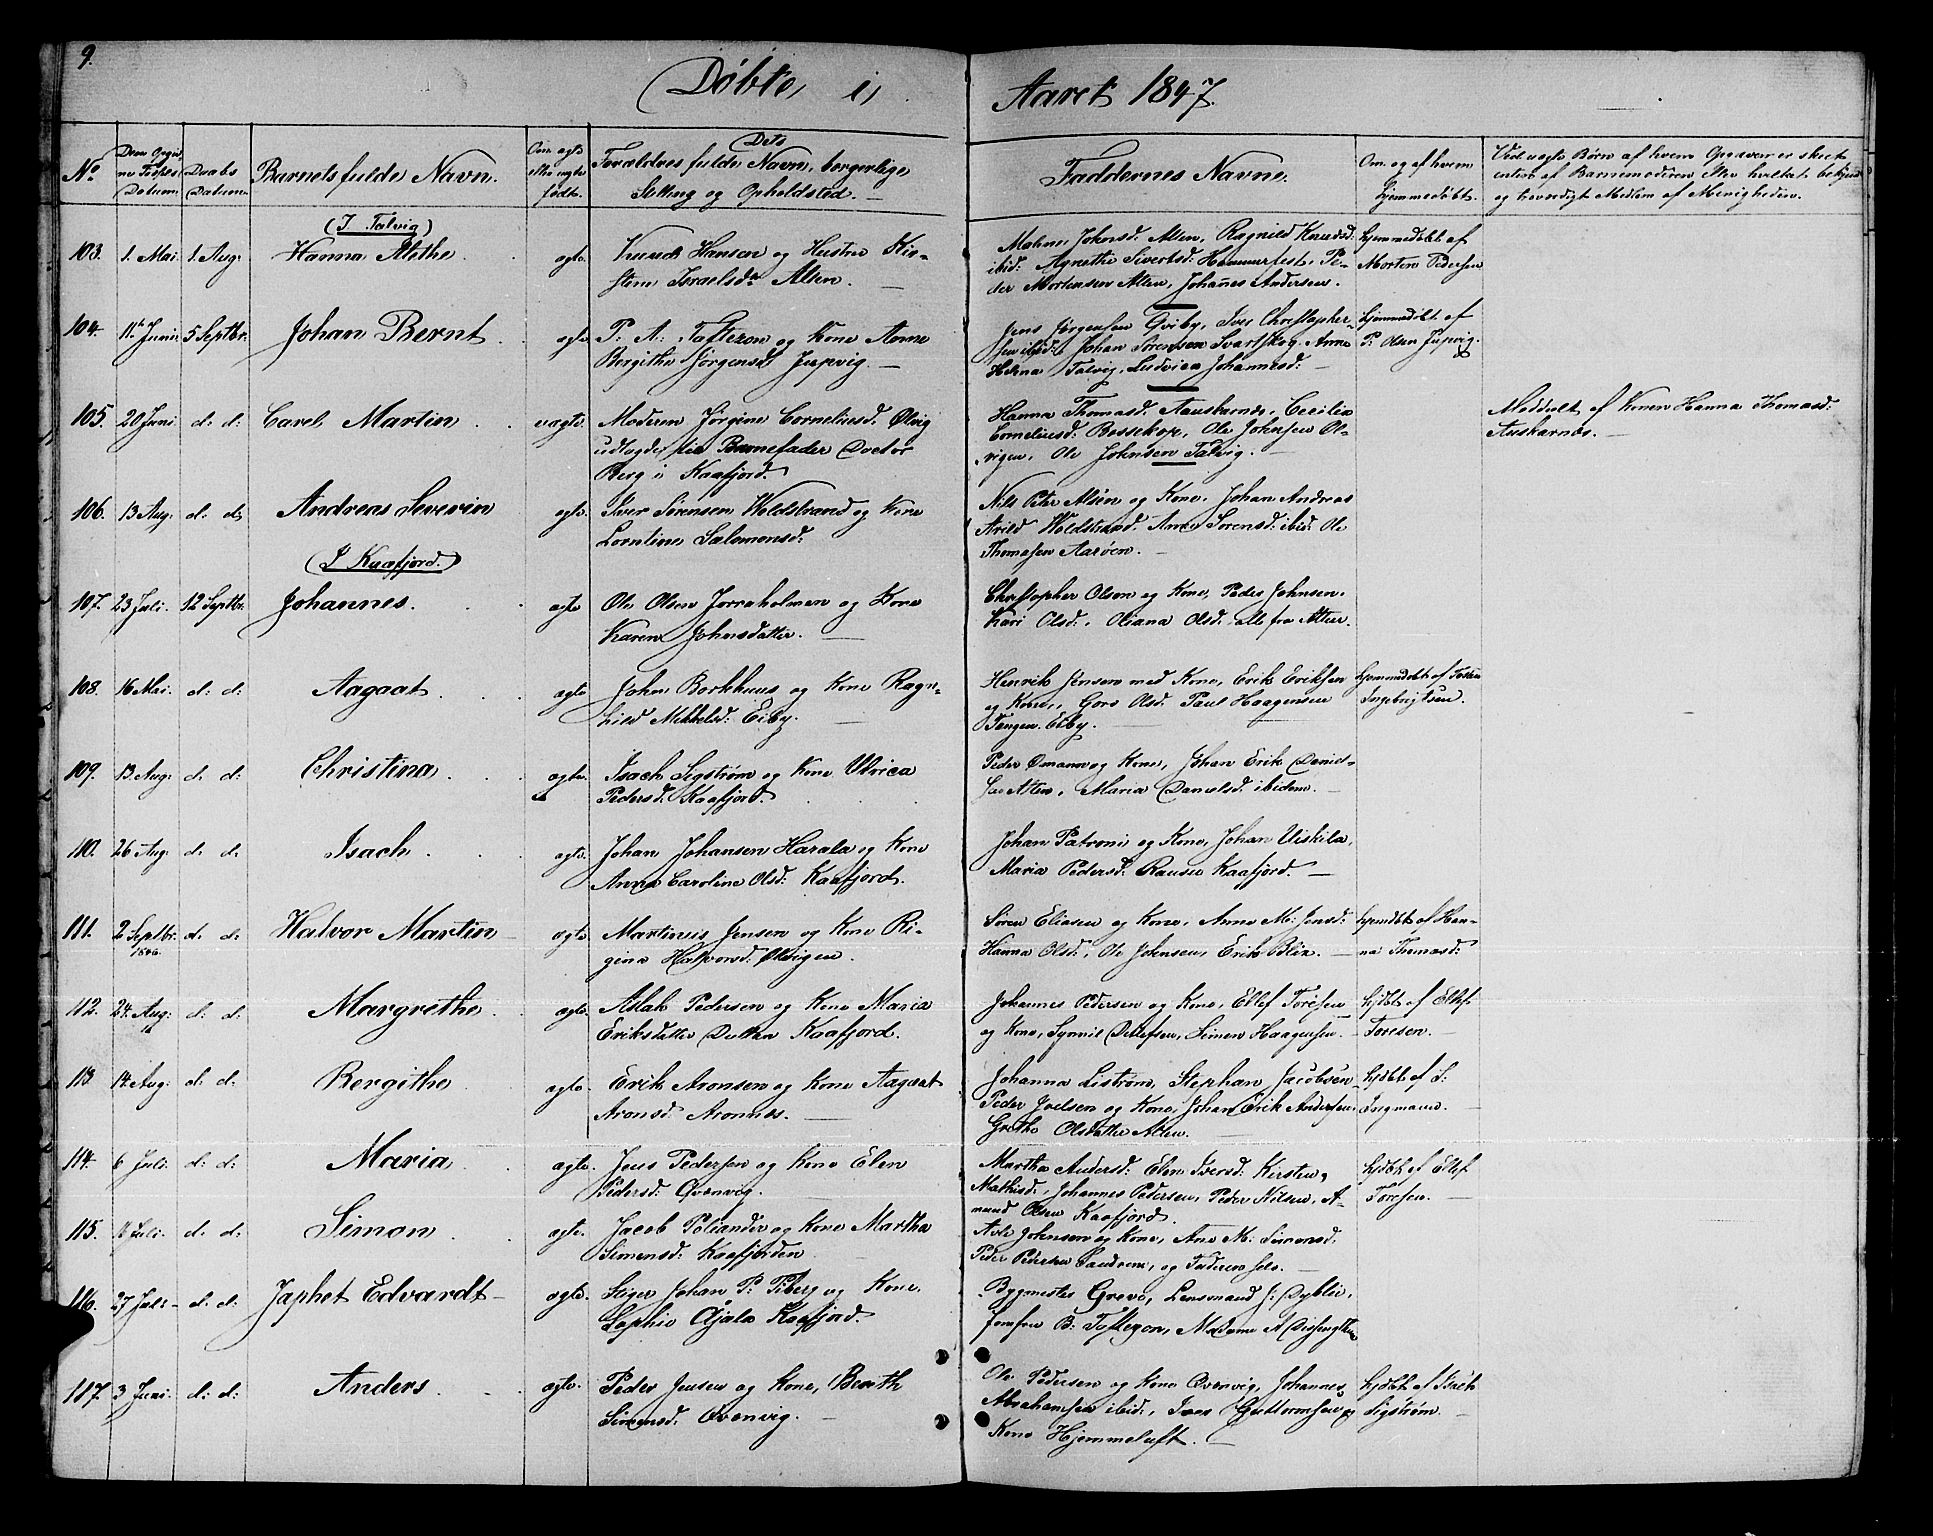 9.
Døbte i Aaret 1847.
No
Datum
Daabs Datum
Barnets fulde Navn.
Om ægte eller uægte født.
Dets Forældres fulde Navn, borgerlige
Stilling og Opholdsted.
Faddernes Navne.
Om og af hvem
hjemmedøbt.
Ved uægte Børn af hvem Opgaven er skeet
enten af Barnemoderen eller hvilket bekjendt
og troværdigt Medlem af Menigheden.
(I Talvig)
103. 1. Mai. 1. Aug: Hanna Alethe ægte Knud Hansen og Hustru Kir-
stine Israelsdr Alten.
Malene Johnsd: Alten, Ragnild Knudsd:
ibid: Agnethe Sivertsd: Hammerfest, Pe-
der Mortensen Alten, Johanes Andersen.
hjemmedøbt af
Morten Pedersen
104. 11te Junii 5 Septbr. Johan Bernt ægte P. A. Taftezon og Kone Anne
Bergithe Jørgensd: Jupvig.
Jens Jørgensen Qviby, Iver Christopher-
sen ibid: Johan Sørensen Svartskog, Anne
Helena Talvig, Ludvica Johannesd:
hjemmedøbt af
P. Olsen Jupvig.
105. 20 Juni d: d: Carel Martin uægte Moderen Jørgine Corneliusd: Olvig
udlagder til Barnefader Doctor
Berg i Kaafjord.
Hanna Thomasd: Auskarnæs, Cecilia
Corneliusd: Bossekop, Ole Johnsen Ol-
vigen, Ole Johnsen Talvig.
Meddelt af Konen Hanna Thomasd:
Auskarnæs.
106. 13 Aug. d: d: Andreas Severin ægte Iver Sørensen Woldstrand og Kone
Lorntine Salomonsd:
Nils Peter Alsén og Kone, Johan Andreas
Arild Woldstrand, Anne Sørensd: ibid: Ole
Thomasen Aarøen.
(I Kaafjord.)
107. 23 Juli. 12 Septbr. Johannes. ægte Ole Olsen Jorraholmen og Kone
Karen Johnsdatter.
Christopher Olsen og Kone, Peder Johnsen,
Kari Olsd:, Oliana Olsd: alle fra Alten.
108. 16 Mai. d: d: Aagaat ægte John Borkhuus og Kone Ragn-
hild Mikkelsd: Eiby.
Henrik Jensen med Kone, Erik Eriksen
og Kone, Goro Olsd: Paul Haagensen
Tangen Eiby.
hjemmedøbt af Tosten
Ingebrigtsen.
109. 13 Aug: d: d: Christina ægte. Isach Sigstrøm og Kone Ulrica
Pedersd: Kaafjord.
Peder Omann og Kone, Johan Erik Daniel-
sen Alten, Maria Danielsd: ibidem.
110. 26 Aug: d: d: Isach. ægte. Johan Johansen Harala og Kone
Anna Caroline Olsd: Kaafjord.
Johan Patroni og Kone, Johan Uiskila,
Maria Pedersd: Kaafjord.
111. 2 Septbr. 1846. d: d: Halvor Martin ægte. Martinus Jensen og Kone Ri-
gine Halvorsd: Olvigen.
Søren Eliasen og Kone, Anne M: Jensd:
Hanna Olsd:, Ole Johnsen, Erik Blix.
hjemdøbt af Han-
na Thomasd:
112. 24 Aug: d: d: Margrethe ægte. Aslak Pedersen og Kone Maria
Eriksdatter Kaafjord.
Johannes Pedersen og Kone, Ellef Toresen
og Kone, Synnil Detlefsen, Simen Haagensen.
hjdbt af Ellef
Toresen.
113 14 Aug: d: d: Bergithe ægte. Erik Aronsen og Kone Aagaat
Aronsd: Aronnes.
Johanna Liström, Stephan Jacobsen
Peder Joelsen og Kone, Johan Erik Andersen
Grethe Olsdatter Alten.
hjdbt af S:
Ingmann.
114. 6 Juli. d: d: Maria ægte. Jens Pedersen og Kone Elen
Pedersd: Qvenvig.
Martha Andersd: Elen Iversd: Kirsten
Mathisd:, Johannes Pedersen, Peder Nilsen, A-
mund Olsen Kaafjord.
hjdbt af Ellef
Toresen.
115. Juli. d: d: Simon ægte. Jacob Poliander og Kone Martha
Simensd: Kaafjorden
Johnsen og Kone, Ane M: Simonsd:
Peder Pedersen og Faderen selv.
116. 27 Juli d: d: Japhet Edvardt ægte. Johan P: Piberg og Kone
Sophie Ojala Kaafjord.
Bygmester Greve, Lensmand J: Dyblie,
Jomfru B: Taftezon, Madame A
117. 3 Juni. d: d: Anders ægte. Peder Jensen og Kone, Berith
Simensd: Qvenvig.
Ole Pedersen og Kone Qvenvig, Johannes
Abrahamsen ibid:, Iver Guttormsen og
Kone Hjemmeluft.
hjdbt af Isach
Sigstrøm.